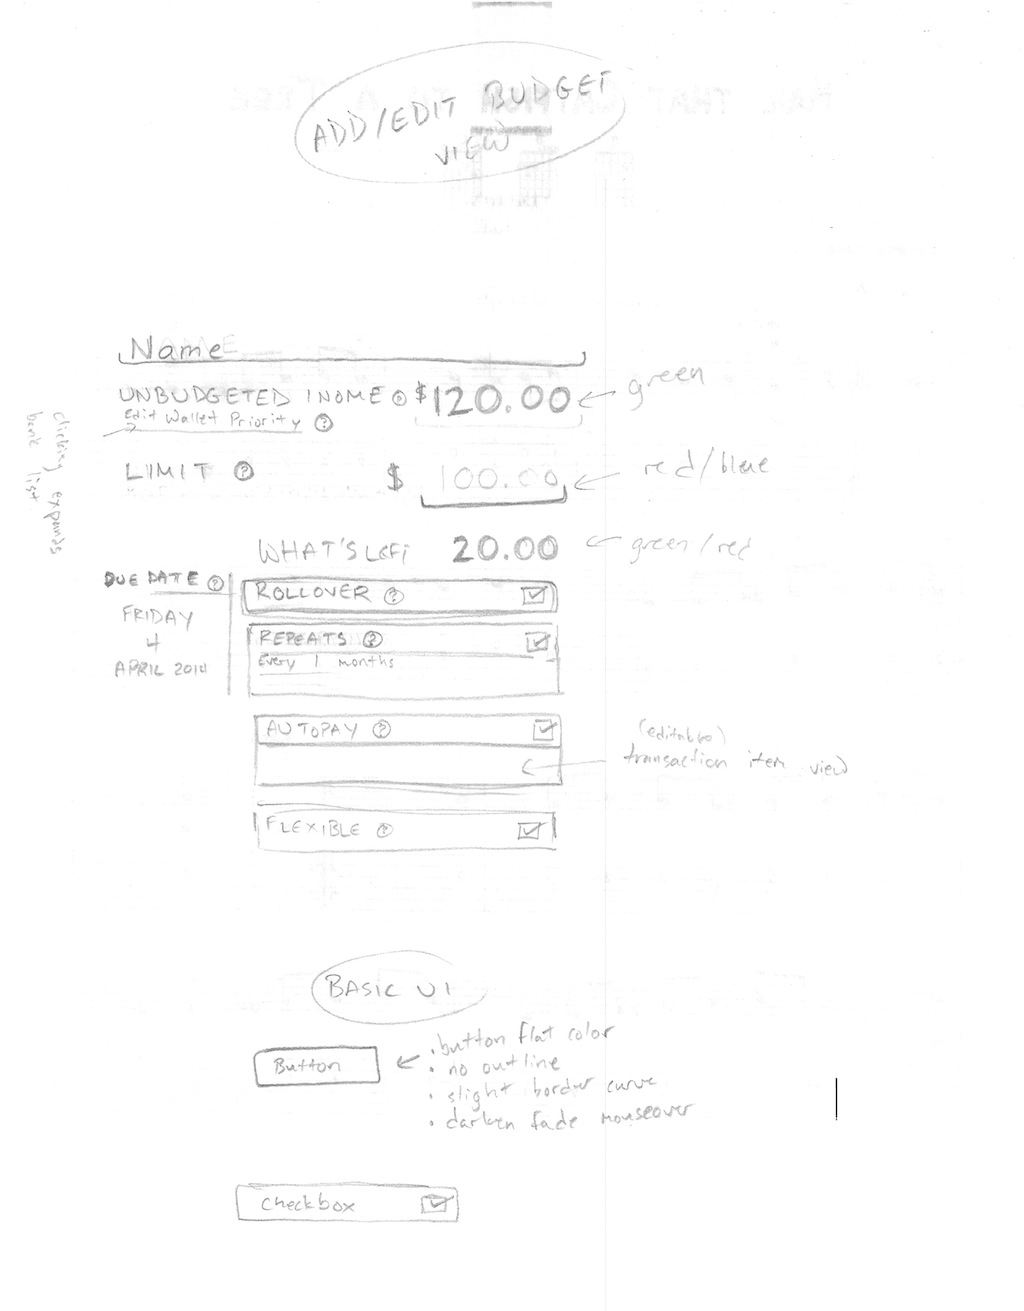 ADD/EDIT BUDGET
VIEW
Name
UNBUDGETED INOME ? $120.00
green
Edit Wallet Priority ?
clicking expands
bank list
LIMIT ? $ 100.00
red/blue
WHAT'S LEFT 20.00
green/red
DUE DATE ?
FRIDAY
4
APRIL 2014
ROLLOVER ?
REPEATS ?
Every 1 months
AUTOPAY ?
(editable)
transaction item view
FLEXIBLE ?
BASIC UI
Button
• button flat color
• no outline
• slight border curve
• darken fade mouseover
checkbox